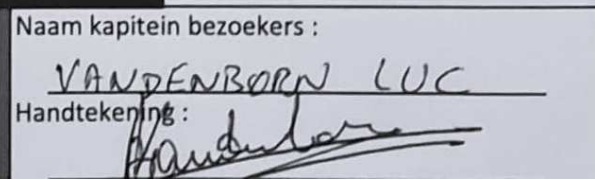 Naam kapitein bezoekers :
VANDENBORN LUC
Handtekening :